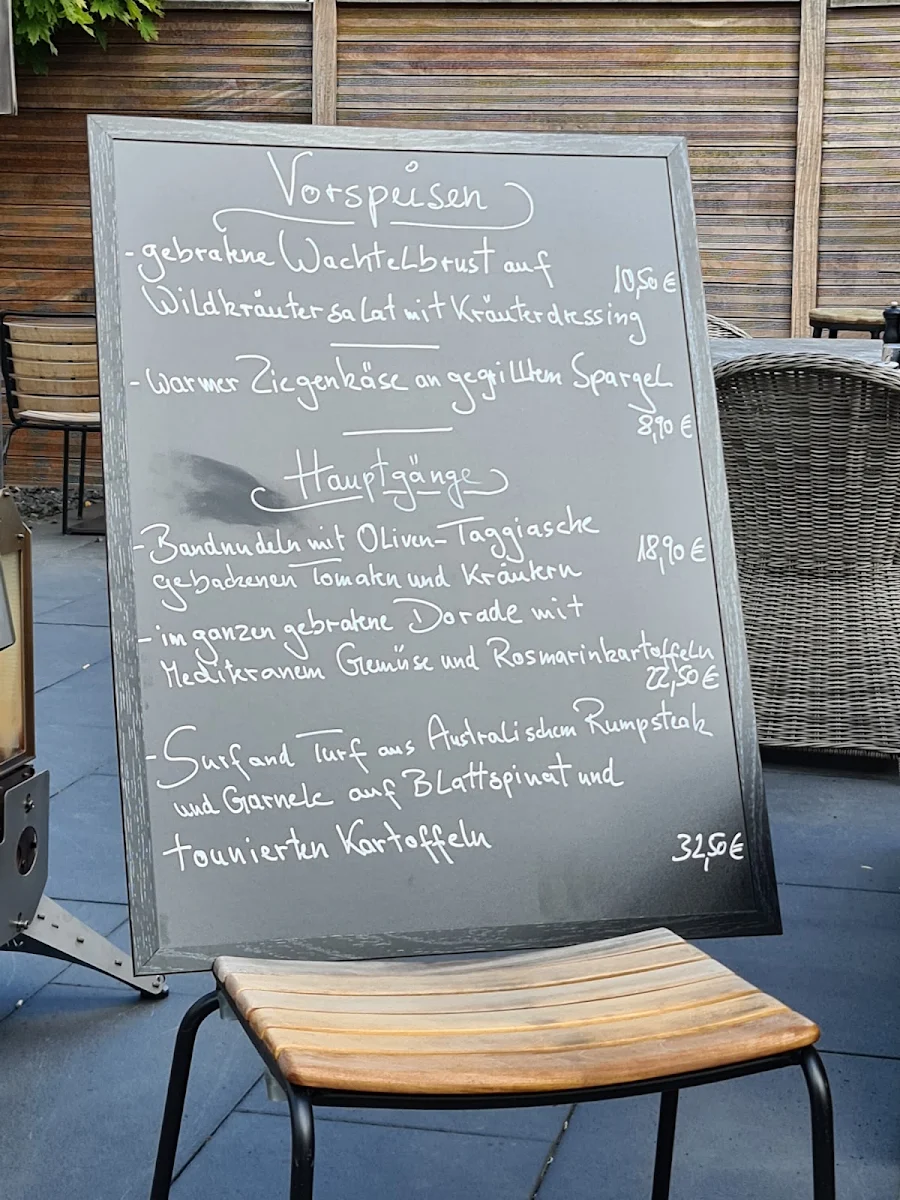 Vorspeisen
- gebratene Wachtelbrust auf
10,50 €
Wildkräutersalat mit Kräuterdressing
- warmer Ziegenkäse an gegrilltem Spargel
8,90 €
Hauptgänge
- Bandnudeln mit Oliven-Taggiasche
18,90 €
gebackenen Tomaten und Kräutern
- im ganzen gebratene Dorade mit
Mediteranem Gemüse und Rosmarinkartoffeln
22,50 €
- Surf and Turf aus Australischem Rumpsteak
und Garnele auf Blattspinat und
tounierten Kartoffeln
32,50 €